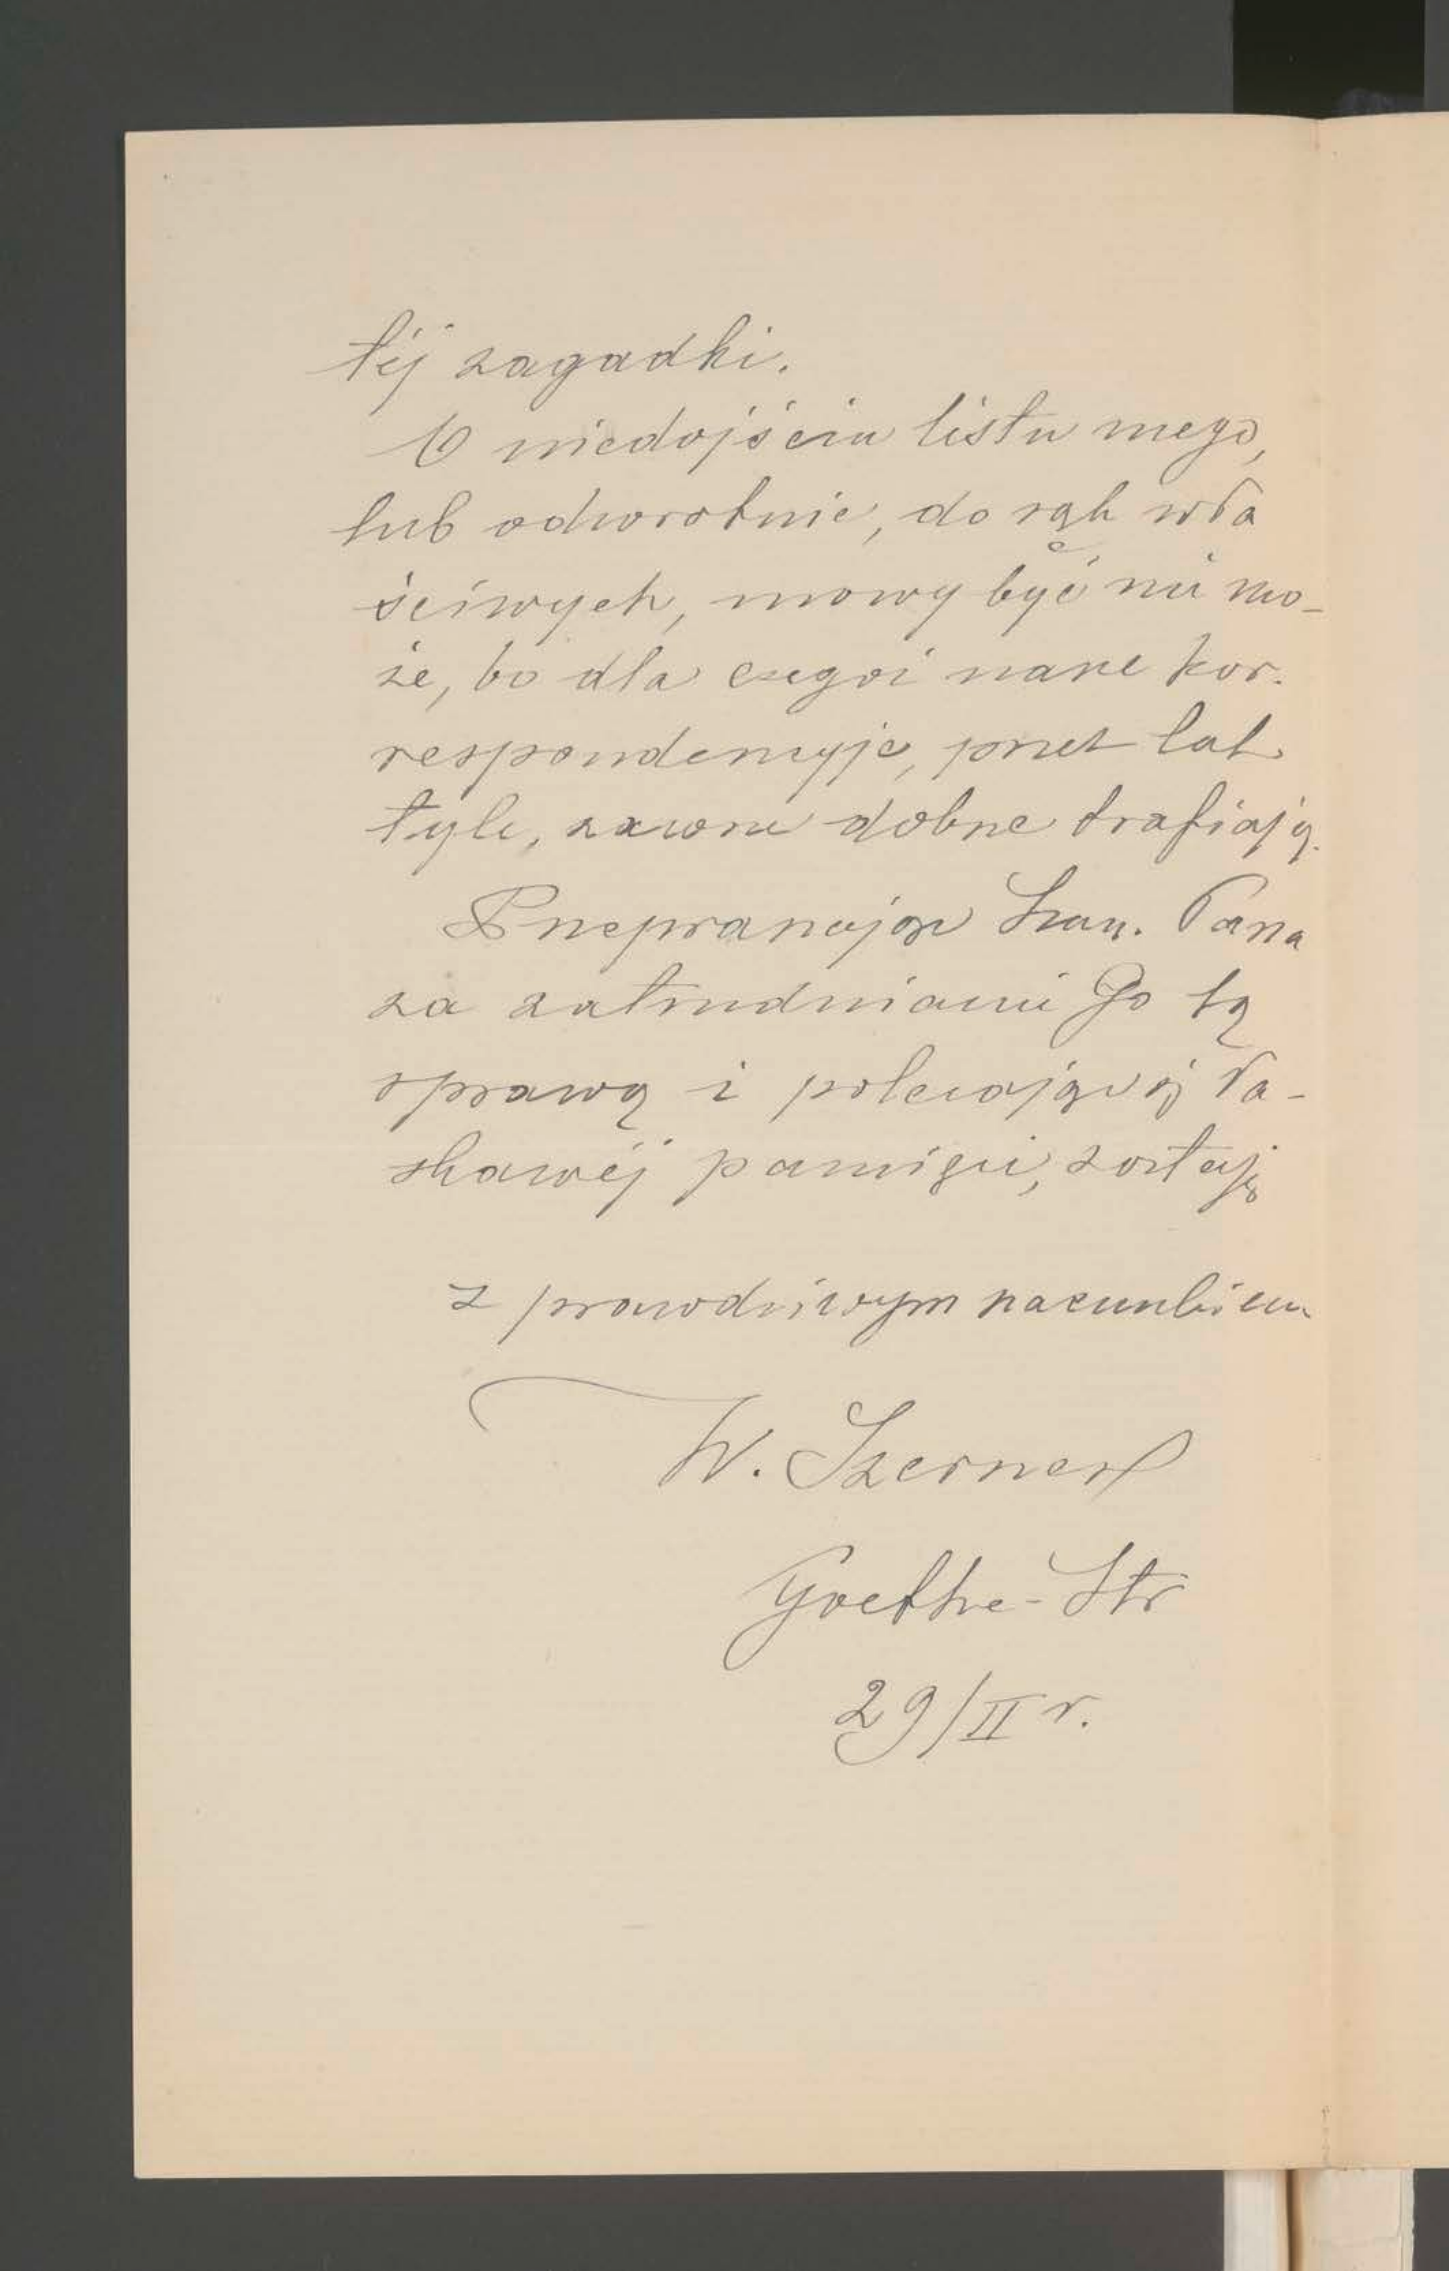 téj zagadki.
O niedojściu listu mego,
lub odwrotnie, do rąk wła
ściwych, mowy być nie mo-
że, bo dla czegoż nasze kor-
respondencyje, przez lat
tyle, zawsze dobrze trafiają.
Przepraszając Szan. Pana
za zatrudnianie Go tą
sprawą i polecając się ła-
skawéj pamięci, zostaję
z prawdziwym szacunkiem
W. Szerner
Goethe-Str
29/II r.